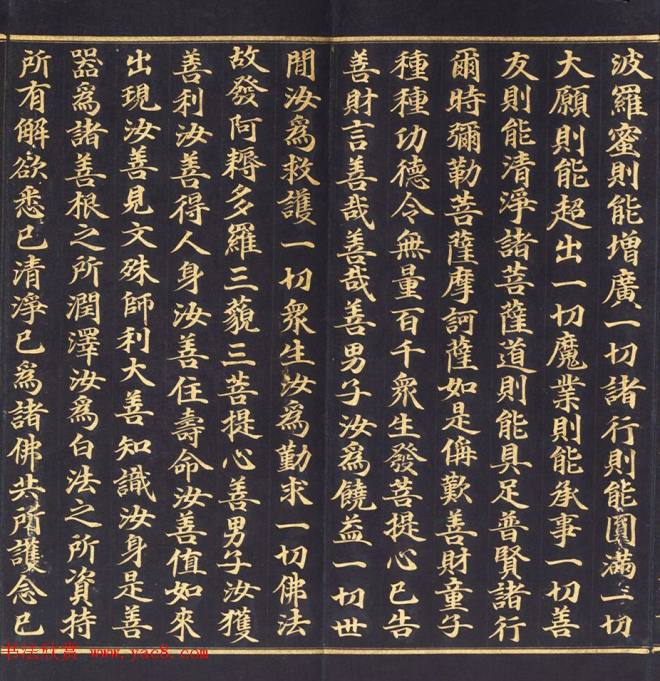 波羅蜜則能增廣一切諸行則能圓滿一切
大願則能超出一切魔業則能承事一切善
友則能清淨諸菩薩道則能具足普賢諸行
爾時彌勒菩薩摩訶薩如是偁歎善財童子
種種功德令無量百千衆生發菩提心已告
善財言善哉善哉善男子汝爲饒益一切世
間汝爲救護一切衆生汝爲勤求一切佛法
故發阿耨多羅三藐三菩提心善男子汝獲
善利汝善得人身汝善住壽命汝善值如來
出現汝善見文殊師利大善知識汝身是善
器爲諸善根之所潤澤汝爲白法之所資持
所有解欲悉已清淨已爲諸佛共所護念已
书法欣赏 www.yac8.com